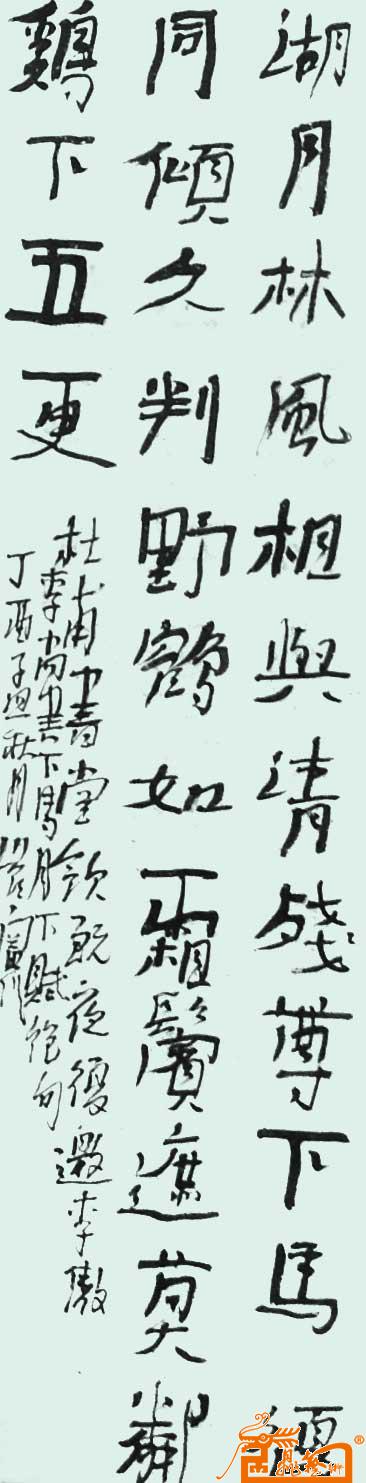 湖月林風相與清殘尊下馬復
同傾久判野鶴如霜鬢遮莫鄰
鷄下五更
杜甫書堂飲既夜復邀李
李尚書下馬月下賦絕句
丁酉秋月